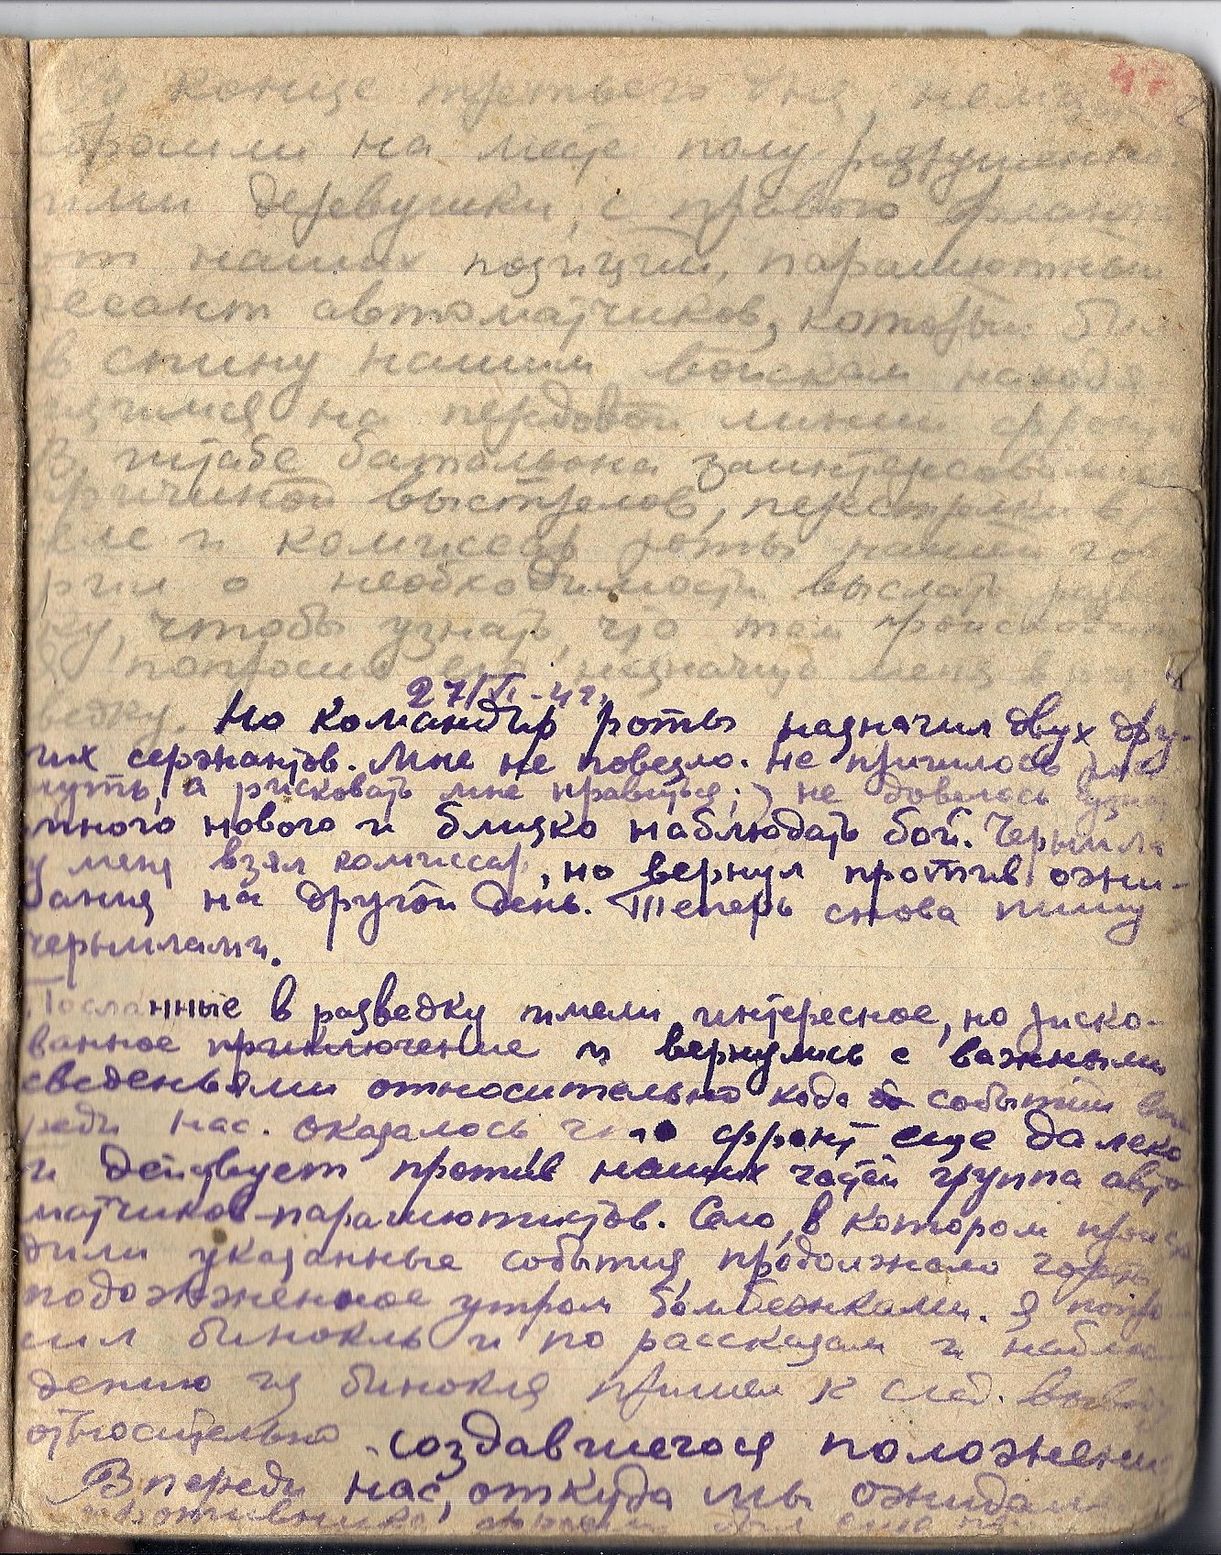 47
В конце третьего дня, немцы
сбросили на месте полуразрушенной
деревушки, с правого фланга
от наших позиций, парашютный
десант автоматчиков, который бил
в спину нашим войскам находя
щимся на передовой линии фронта
В штабе батальона заинтересовались
причиной выстрелов, перестрелки в
и комиссар роты нашей гово
рил о необходимости выслать развед
ку, чтобы узнать, что там происходит
Я попросил его назначить меня в раз
ведку.
27/VI-42г.
Но командир роты назначил двух дру-
гих сержантов. Мне не повезло. Не пришлось риск
нуть, а рисковать мне нравится; не довелось узнать
много нового и близко наблюдать бой. Чернила
у меня взял комиссар, но вернул против ожи-
дания на другой день. Теперь снова пишу
чернилами.
Посланные в разведку имели интересное, но риско-
ванное приключение и вернулись с важными
сведеньями относительно хода событий впе
реди нас. Оказалось что фронт еще далеко
и действует против наших частей группа авто
матчиков-парашютистов. Село, в котором происхо
дили указанные события, продолжало гореть
подожженное утром бомбежками. Я попро
сил бинокль и по рассказам и наблю
дению из бинокля пришел к след. выводу
относительно создавшегося положения
Впереди нас, откуда мы ожидали
противника, был еще